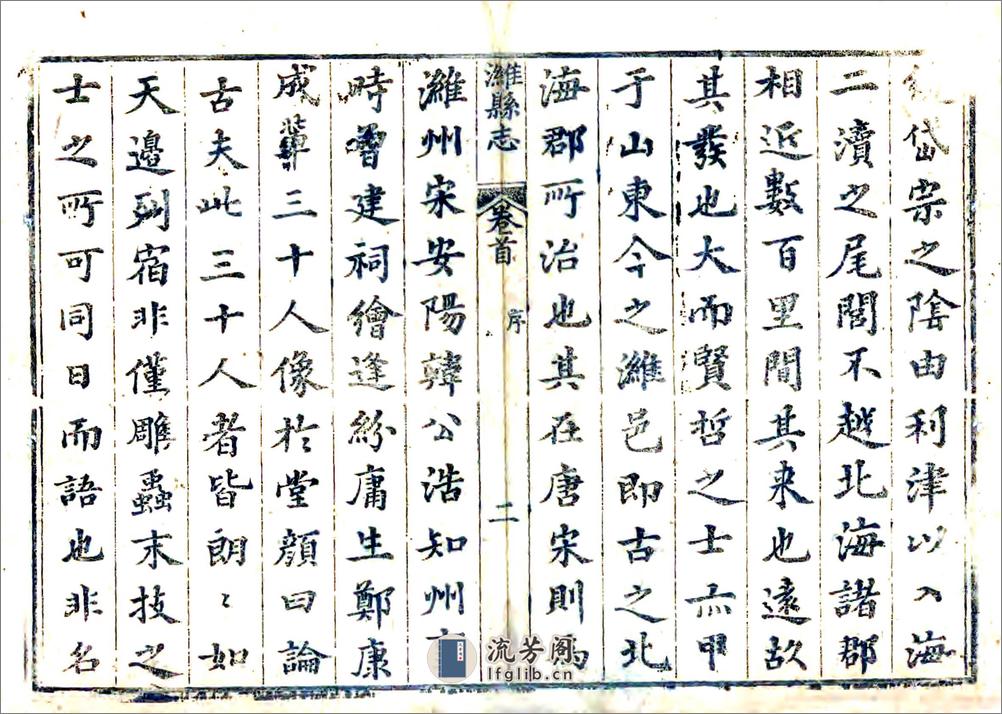 岱宗之陰由利津以入海
二瀆之尾閭不越北海諸郡
相近數百里間其来也遠故
其發也大而賢哲之士亦甲
于山東今之濰邑即古之北
海郡所治也其在唐宋則為
濰縣志 卷首 序 二
濰州宋安陽韓公浩知州
時曽建祠繪逄紛庸生鄭康
成輩三十人像於堂顔曰論
古夫此三十人者皆朗〻如
天邊列宿非僅雕蟲末技之
士之所可同日而語也非名
流芳阁
lfglib.cn